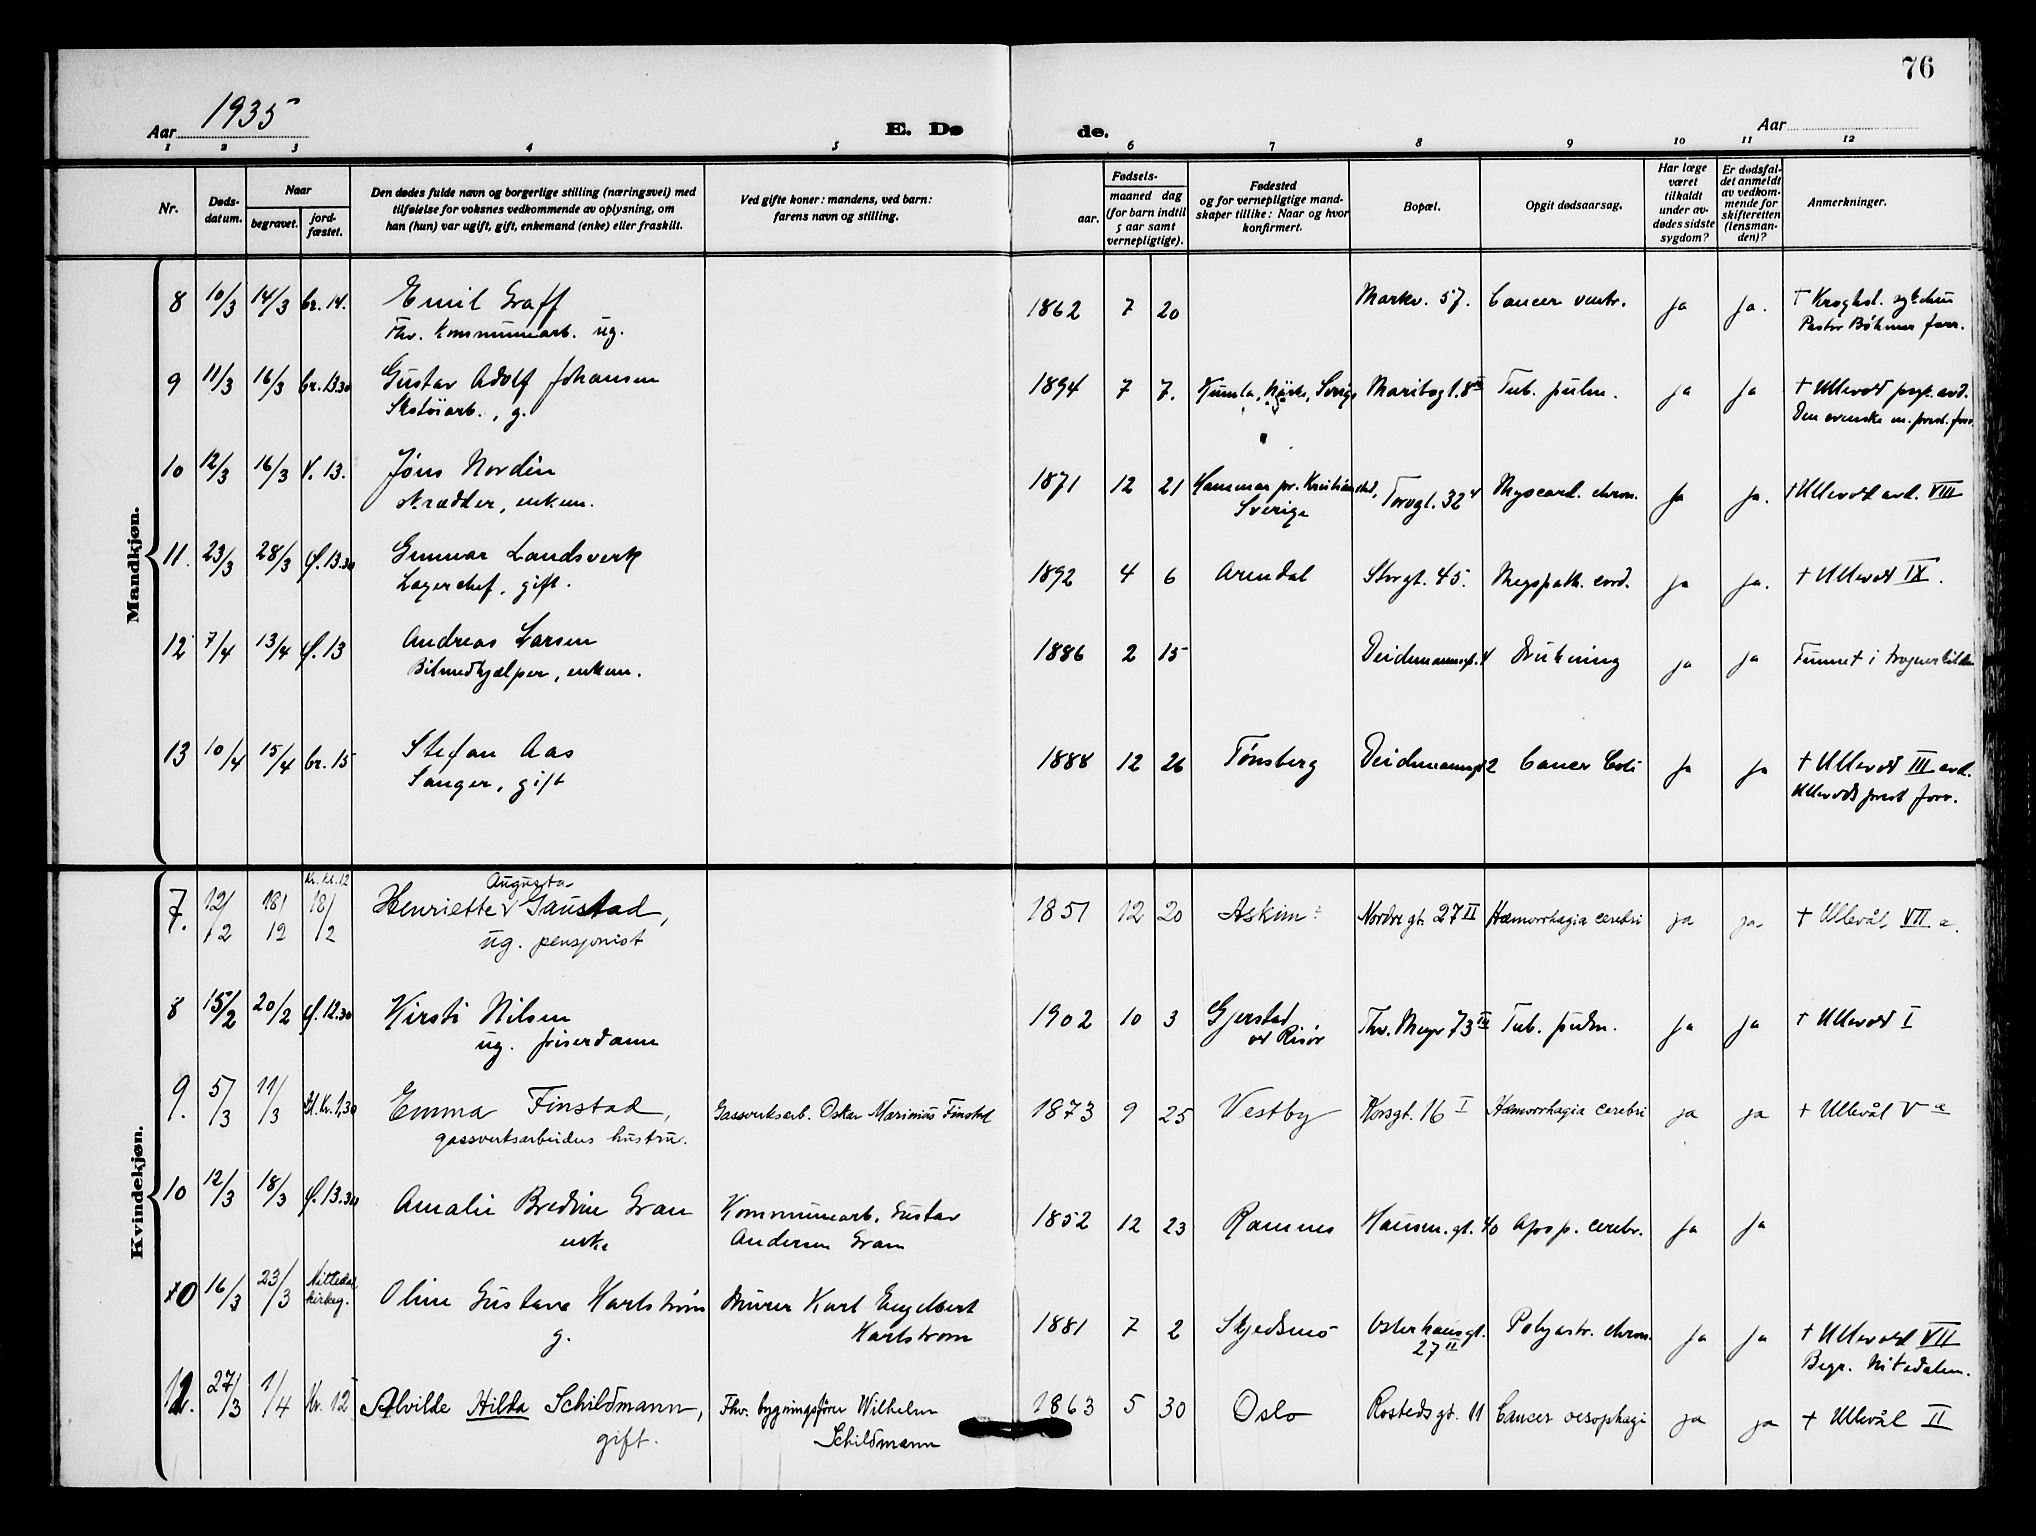 76
Aar 1935
E. Dø
de.
Aar
1 2 3 4 5 6 7 8 9 10 11 12
Nr.
Døds-
datum.
Naar
begravet.
jord-
fæstet.
Den dødes fulde navn og borgerlige stilling (næringsvei) med
tilføielse for voksnes vedkommende av oplysning, om
han (hun) var ugift, gift, enkemand (enke) eller fraskilt.
Ved gifte koner: mandens, ved barn:
farens navn og stilling.
Fødsels-
aar.
maaned dag
(for barn indtil
5 aar samt
vernepligtige).
Fødested
og for vernepligtige mand-
skaper tillike: Naar og hvor
konfirmert.
Bopæl.
Opgit dødsaarsag.
Har læge
været
tilkaldt
under av-
dødes sidste
sygdom?
Er dødsfal-
det anmeldt
av vedkom-
mende for
skifteretten
(lensman-
den)?
Anmerkninger.
Mandkjøn.
8 10/3 14/3 Cr. 14. Emil Graff 1862 7 20 Markv. 57. Cancer ventr. ja ja. † Kroghst. sykehus
Fhv. Kommunearb. ug. Pastor Böhmer forr.
9 11/3 16/3 Cr. 13.30 Gustav Adolf Johansen 1894 7 7. Kumla, Närke, Sverige Maribogt. 8 Tub. pulm. ja ja † Ullevål psyk. avd.
Skotöiarb., g. Den svenske m. prest. forr.
10 12/3 16/3 V. 13. Jöns Nordin 1871 12 21 Hammar pr. Kristianstad, Torvgt. 32 Myocard. chron. ja ja. † Ullevål avd. VIII
skrædder, enkem. Sverige
11. 23/3 28/3 Ø. 13.30 Gunnar Landsverk 1892 4 6 Arendal Storgt. 45. Myopath. cord. ja ja. † Ullevål IX.
Lagerchef, gift.
12 7/4 13/4 Ø. 13 Andreas Larsen 1886 2 15 Deichmannsgt. 4 Drukning ja ja Funnet i Vognerkilen
Bilmedhjælper, enkem.
13 10/4 15/4 Cr. 15 Stefan Aas 1888 12 26 Tønsberg Deichmannsgt 2 Cancer Coli ja ja † Ullevål III avd.
Sanger, gift Ullevåls prest forr.
Kvindekjøn.
Kr. kl. 12
Augusta
7. 12/2 18/2 18/2 Henriette Gaustad, 1851 12 20 Askim Nordre gt. 27 II Hæmorrhagia cerebri ja ja † Ullevål VII a.
ug. pensjonist
8 15/2 20/2 Ø. 12.30 Kirsti Nilsen 1902 10 3 Gjerstad Thv. Meyr 73 III Tub. pulm. ja ja † Ullevål I
ug. friserdame v/ Risör
9. 5/3 11/3 Kr. 1,30 Emma Finstad, Gassverksarb. Oskar Marinius Finstad 1873 9 25 Vestby Korsgt. 16 I Hæmorrhagia cerebri ja ja † Ullevål V a
gassverksarbeiders hustru.
10 12/3 18/3 Ø. 13.30 Amalie Bredine Gran Kommunearb. Gustav 1852 12 23 Ramnes Hausm. gt. 40 Apop. cerebr. ja ja
enke Andersen Gran
10 16/3 23/3 Nittedal kirkeg. Oline Gustava Karlström Murer Karl Engelbert 1881 7 2 Skjedsmo Osterhausgt. 27 II Polyartr. chron. ja ja † Ullevål VII
g. Karlstrøm Begr. Nitedalen.
12. 27/3 1/4 Kr. 12 Alvilde Hilda Schildmann, Fhv. bygningsfører Wilhelm 1863 5 30 Oslo Rostedsgt. 11 Cancer oesophagi ja ja † Ullevål II
gift. Schildmann